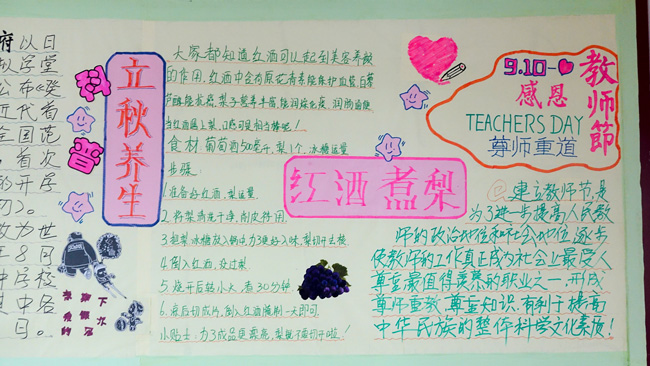 府以日
学堂
公布《癸
近代着
全国范
首次
的开学
切》。
致为世
至8月
中学校
其中各
日。
科普
立秋养生
下次
大家都知道红酒可以起到美容养颜
的作用,红酒中含有原花青素能保护血管,白藜
芦醇能抗癌,梨子营养丰富能润综合症,润肠通便
当红酒遇上梨,口感可是相当棒呢!
食材:葡萄酒500毫升,梨1个,冰糖适量
步骤:
1.准备好红酒,梨适量
2.将梨清洗干净,削皮待用
3.把梨冰糖放入锅中,为了更好入味,梨切开去核
4.倒入红酒,没过梨
5.烧开后转小火,煮30分钟
6.最后切成片,倒入红酒腌制一天即可
小贴士:为了成品更漂亮,梨就不要切开啦!
红酒煮梨
9.10
感恩
TEACHERS DAY
尊师重道
教师節
建立教师节,是
为了进一步提高人民教
师的政治地位和社会地位,逐步
使教师的工作真正成为社会上最受人
尊重,最值得羡慕的职业之一,形成
尊师重教,尊重知识,有利于提高
中华民族的整体科学文化素质!